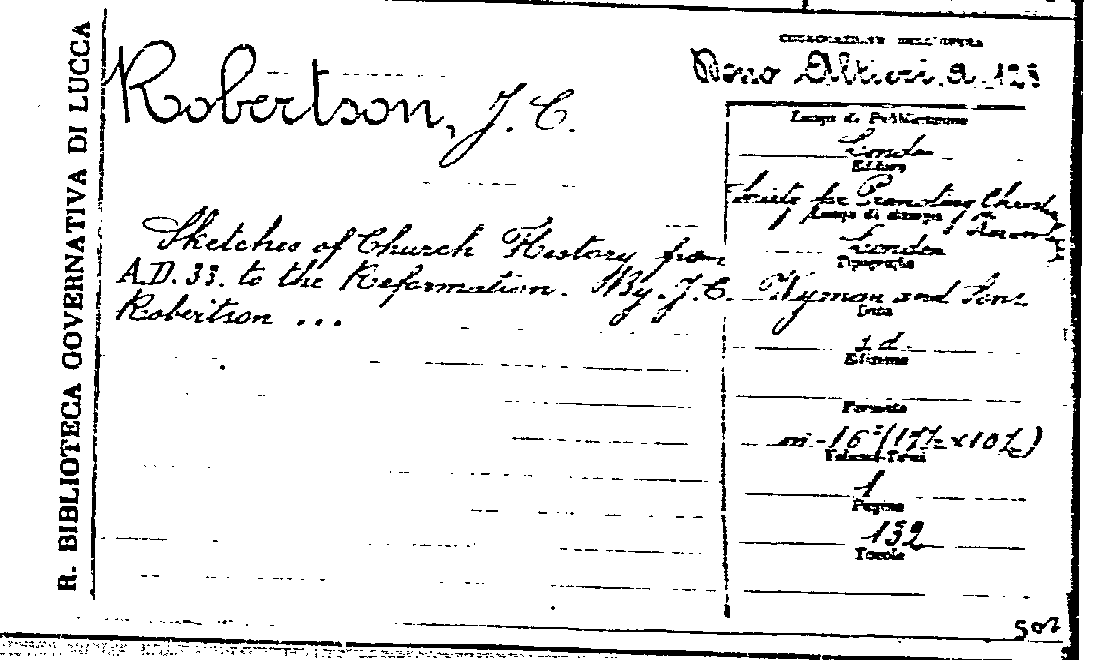 R. BIBLIOTECA GOVERNATIVA DI LUCCA
Robertson, J. C.
Sketches of Church History from
A.D. 33. to the Reformation. By. J. C.
Robertson ...
COLLOCAZIONE DELL'OPERA
Dono Altieri. a. 128
Luogo di Pubblicazione
London
Editore
Society for Promoting
Luogo di stampa
London
Tipografia
Wyman and Sons
Data
s. d.
Edizione
Formato
in-16°
Volumi-Tomi
1
Pagine
132
Tavole
502